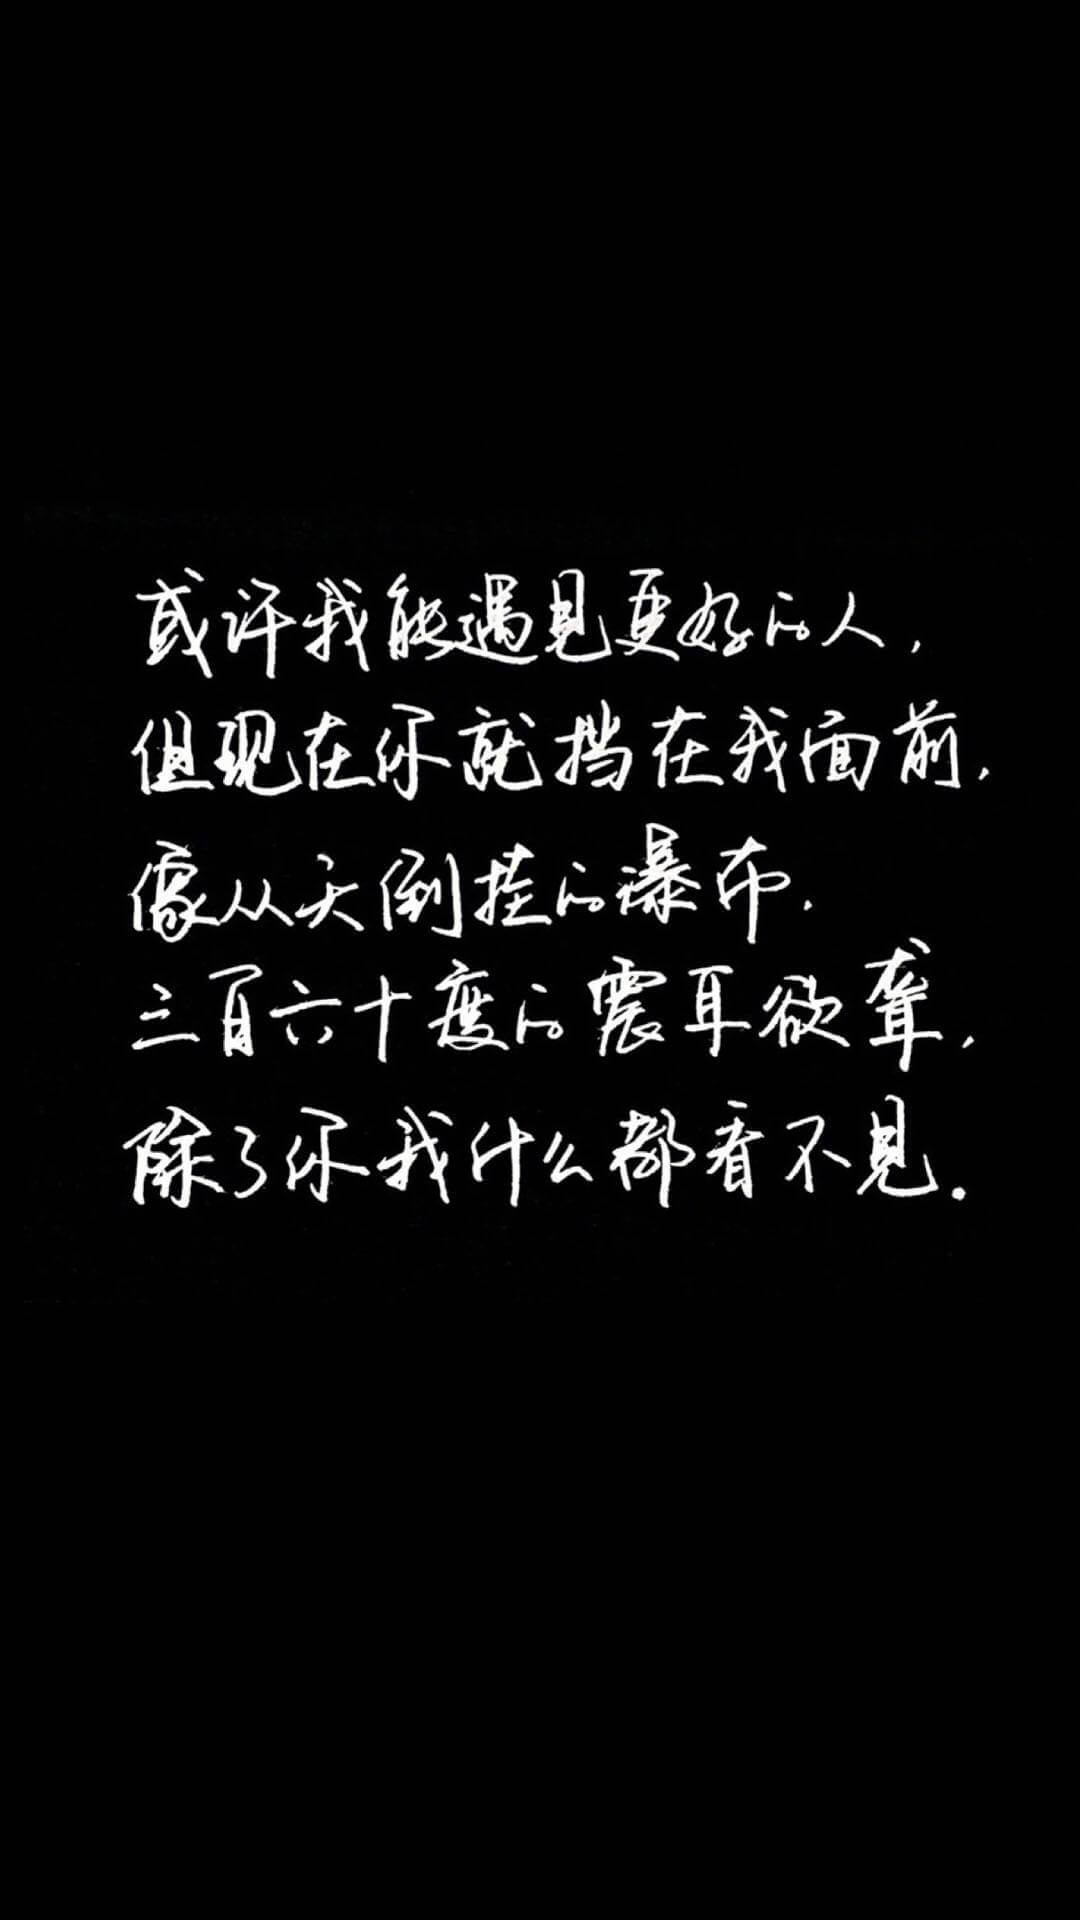 或许我能遇见更好的人,
但现在你就挡在我面前,
像从天倒挂的瀑布.
三百六十度的震耳欲聋,
除了你我什么都看不见.